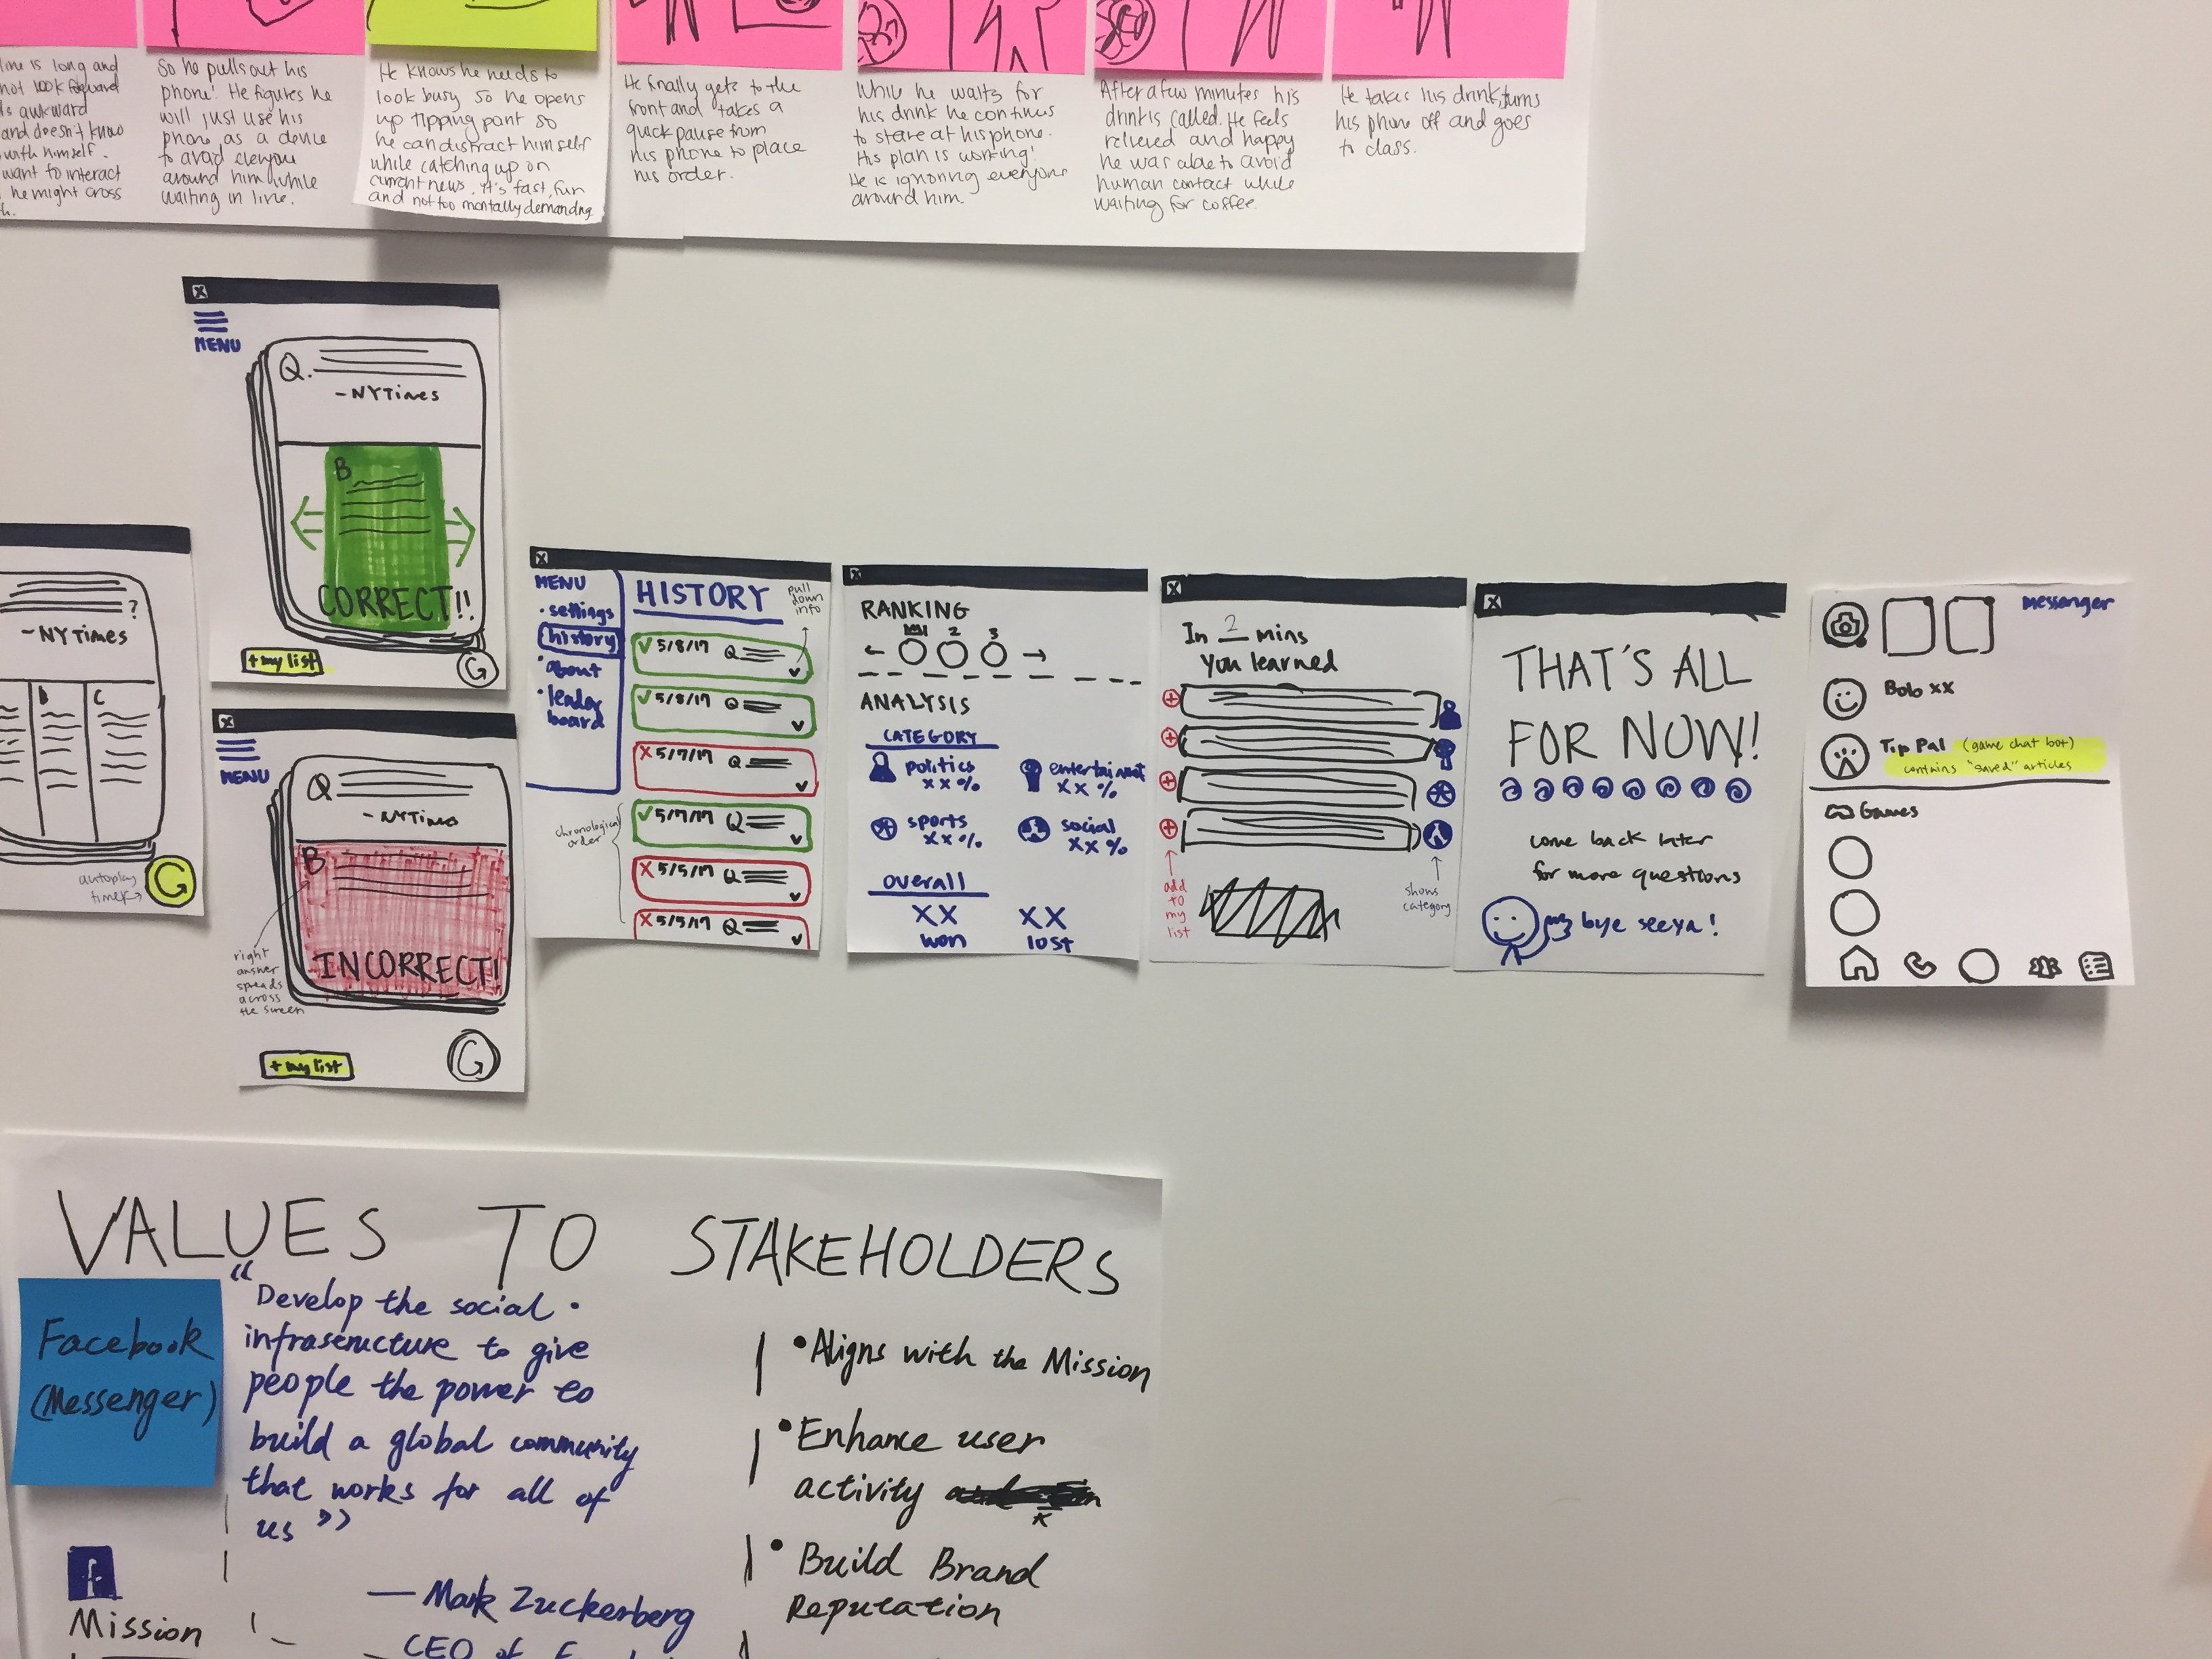 line is long and
not look forward
is awkward
and doesn't know
with himself.
want to interact
he might cross
So he pulls out his
phone! He figures he
will just use his
phone as a device
to avoid everyone
around him while
waiting in line.
He knows he needs to
look busy so he opens
up tipping point so
he can distract himself
while catching up on
current news. It's fast, fun
and not too mentally demanding
He finally gets to the
front and takes a
quick pause from
his phone to place
his order.
While he waits for
his drink he continues
to stare at his phone.
His plan is working!
He is ignoring everyone
around him.
After a few minutes his
drink is called. He feels
relieved and happy
he was able to avoid
human contact while
waiting for coffee.
He takes his drink, turns
his phone off and goes
to class.
?
- NYTimes
B
C
autoplay
timer
X
MENU
Q.
- NYTimes
B
CORRECT!!
+ my list
X
MENU
Q
- NYTimes
B
INCORRECT!
right
answer
spreads
across
the screen
+ my list
X
MENU
• settings
history
• about
• leader
board
HISTORY
pull
down
info
✓ 5/8/17 Q
✓ 5/8/17 Q
X 5/7/17 Q
✓ 5/7/17 Q
X 5/5/17 Q
X 5/5/17 Q
chronological
order
X
RANKING
2 3
ANALYSIS
CATEGORY
politics
XX%
entertainment
XX%
sports
XX%
social
XX%
overall
XX
won
XX
lost
X
In 2 mins
you learned
add
to
my
list
shows
category
X
THAT'S ALL
FOR NOW!
come back later
for more questions
bye seeya!
Messenger
Bolo xx
Tip Pal (game chat bot)
contains "saved" articles
Games
VALUES TO STAKEHOLDERS
Facebook
(Messenger)
"Develop the social
infrastructure to give
people the power to
build a global community
that works for all of
us"
— Mark Zuckerberg
CEO of
f
Mission
• Aligns with the Mission
• Enhance user
activity
• Build Brand
Reputation